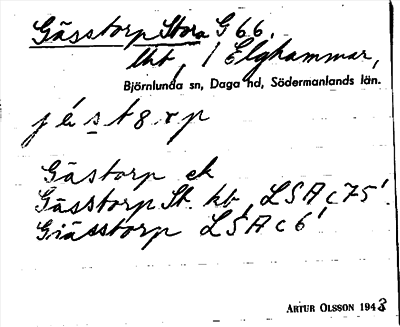 Gässtorp Stora G 66.
tht, / Elghammar,
Björnlunda sn, Daga hd, Södermanlands län.
jéstørp
Gästorp ek
Gässtorp St. kb, LSA c 75'.
Giässtorp LSA c 6'
ARTUR OLSSON 1943